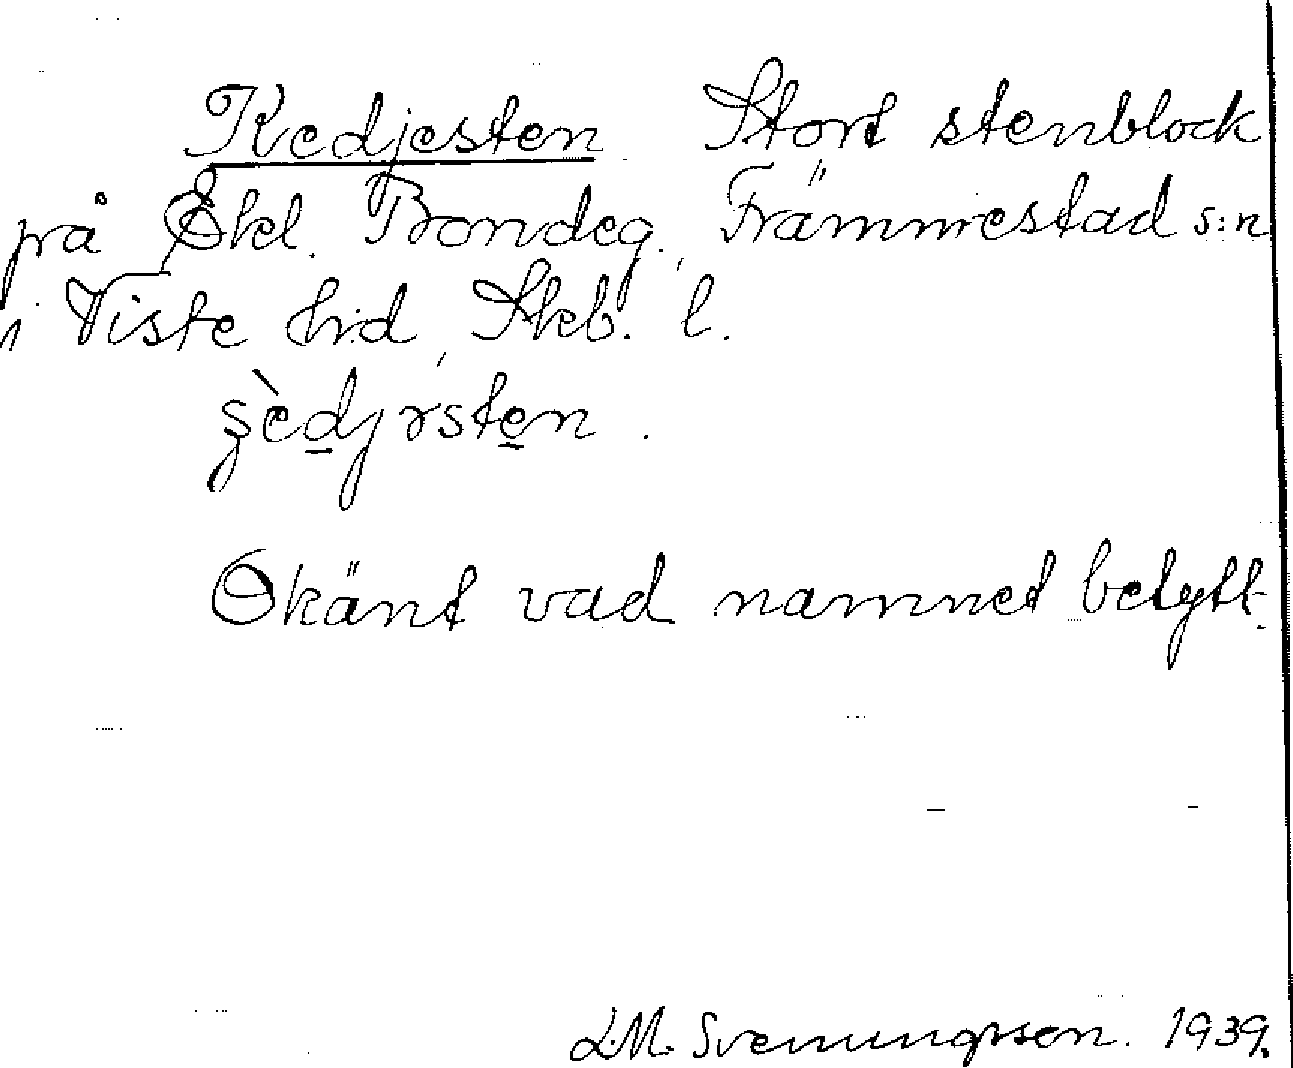 Kedjesten Stort stenblock
på Skl. Bondeg., Främmestad s:n
i Viste hd, Skb. l.
Okänt vad namnet betytt.
L.M. Svenungsson. 1939.